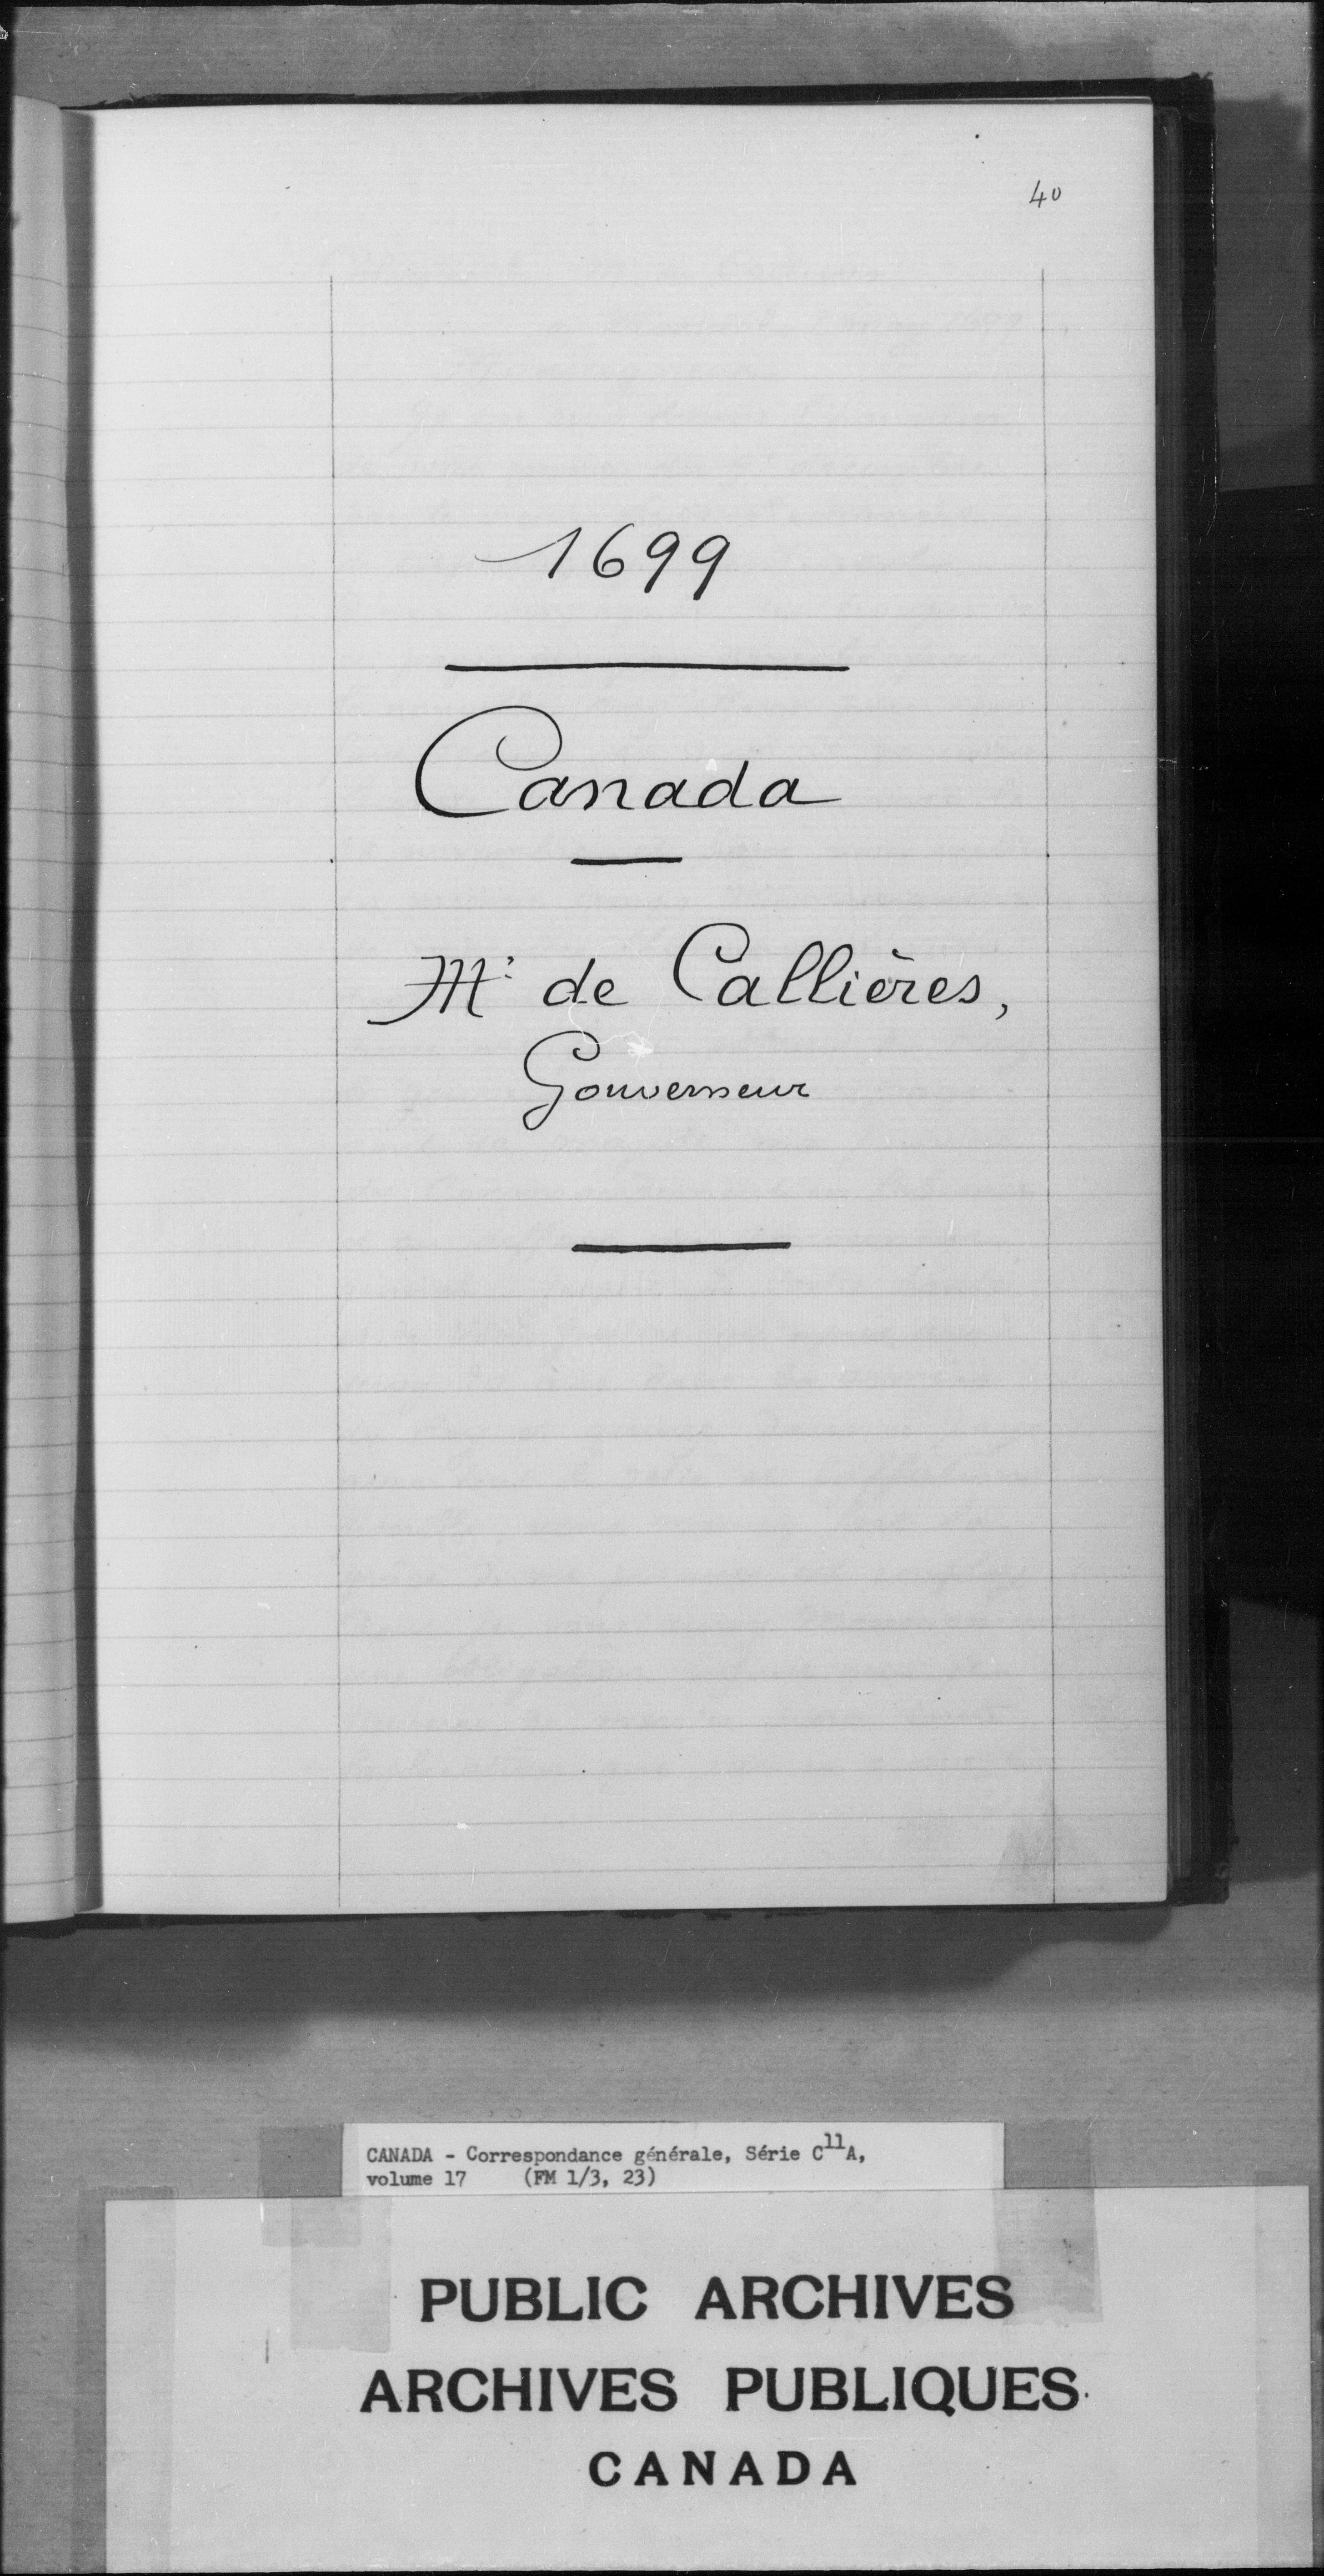 40
1699
Canada
Mr de Callières,
Gouverneur
CANADA - Correspondance générale, Série C11A,
volume 17 (FM 1/3, 23)
PUBLIC ARCHIVES
ARCHIVES PUBLIQUES
CANADA